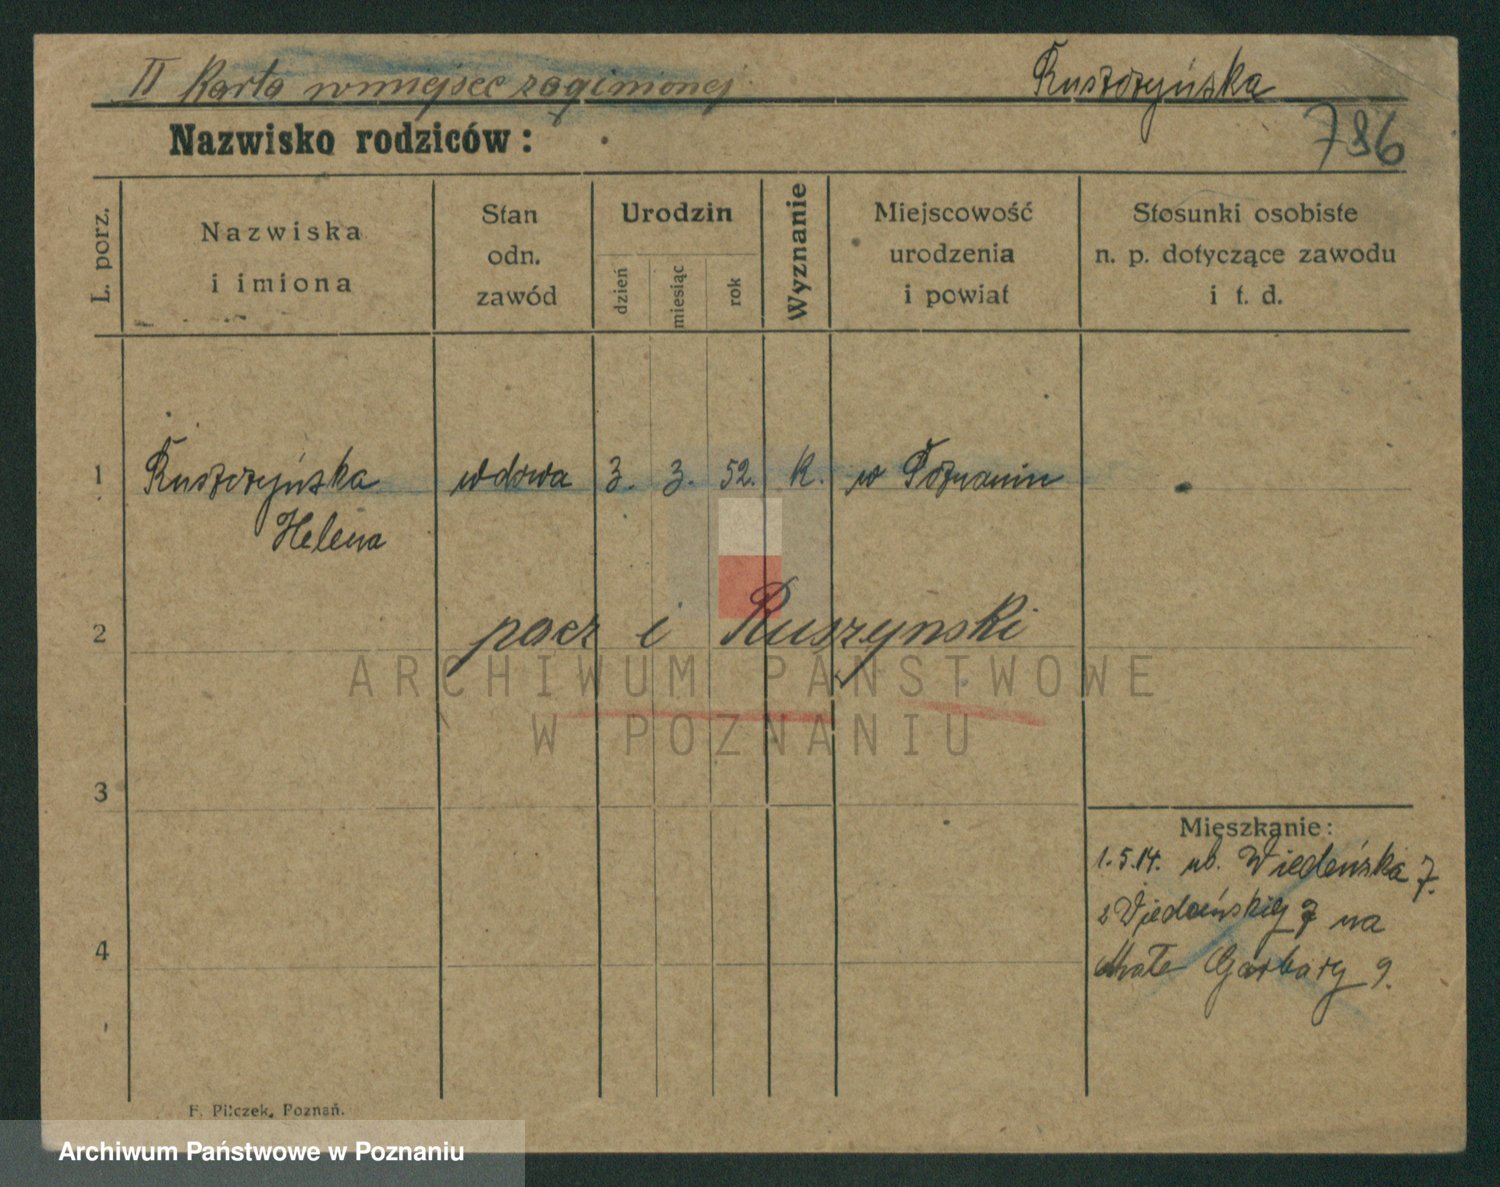 II Karta w miejsce zaginionej
Ruszczyńska
786
Nazwisko rodziców:
L. porz.
Nazwiska
i imiona
Stan
odn.
zawód
Urodzin
dzień
miesiąc
rok
Wyznanie
Miejscowość
urodzenia
i powiat
Stosunki osobiste
n. p. dotyczące zawodu
i t. d.
1 Ruszczyńska wdowa 3. 3. 52. K. w Poznaniu
Helena
2 pacz i Ruszynski
3
4
Mieszkanie:
1.5.14. ul. Wiedeńska 7.
z Wiedeńskiej 7 na
Małe Garbary 9.
ARCHIWUM PAŃSTWOWE
W POZNANIU
F. Pilczek, Poznań.
Archiwum Państwowe w Poznaniu